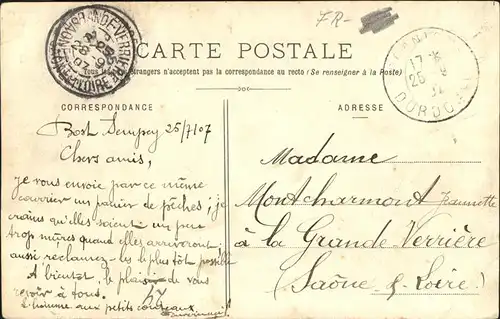 FR-
CARTE POSTALE
Tous les étrangers n'acceptent pas la correspondance au recto (Se renseigner à la Poste)
CORRESPONDANCE
ADRESSE
25/7/07
Chers amis,
je vous envoie par ce même
courrier un panier de pêches ; je
crains qu'elles soient un peu
trop mûres quand elles arriveront ;
aussi réclamez-les le plus tôt possible
A bientôt le plaisir de vous
revoir à tous.
L'homme aux petits couteaux
Madame
Montcharmont Jeannette
à la Grande Verrière
(Saône & Loire)
GRANDE VERRIÈRE
SAÔNE-ET-LOIRE
17
25
DORDOGNE